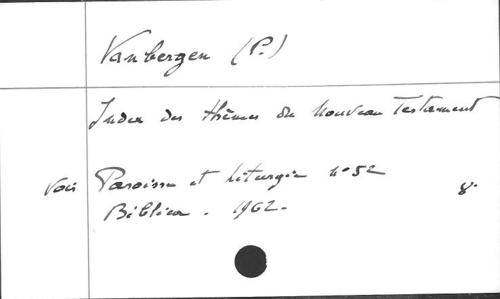 Vanbergen (P.)
Index des thèmes du Nouveau Testament
Voir Paroisse et Liturgie n° 52
Biblica . 1962 -
8°